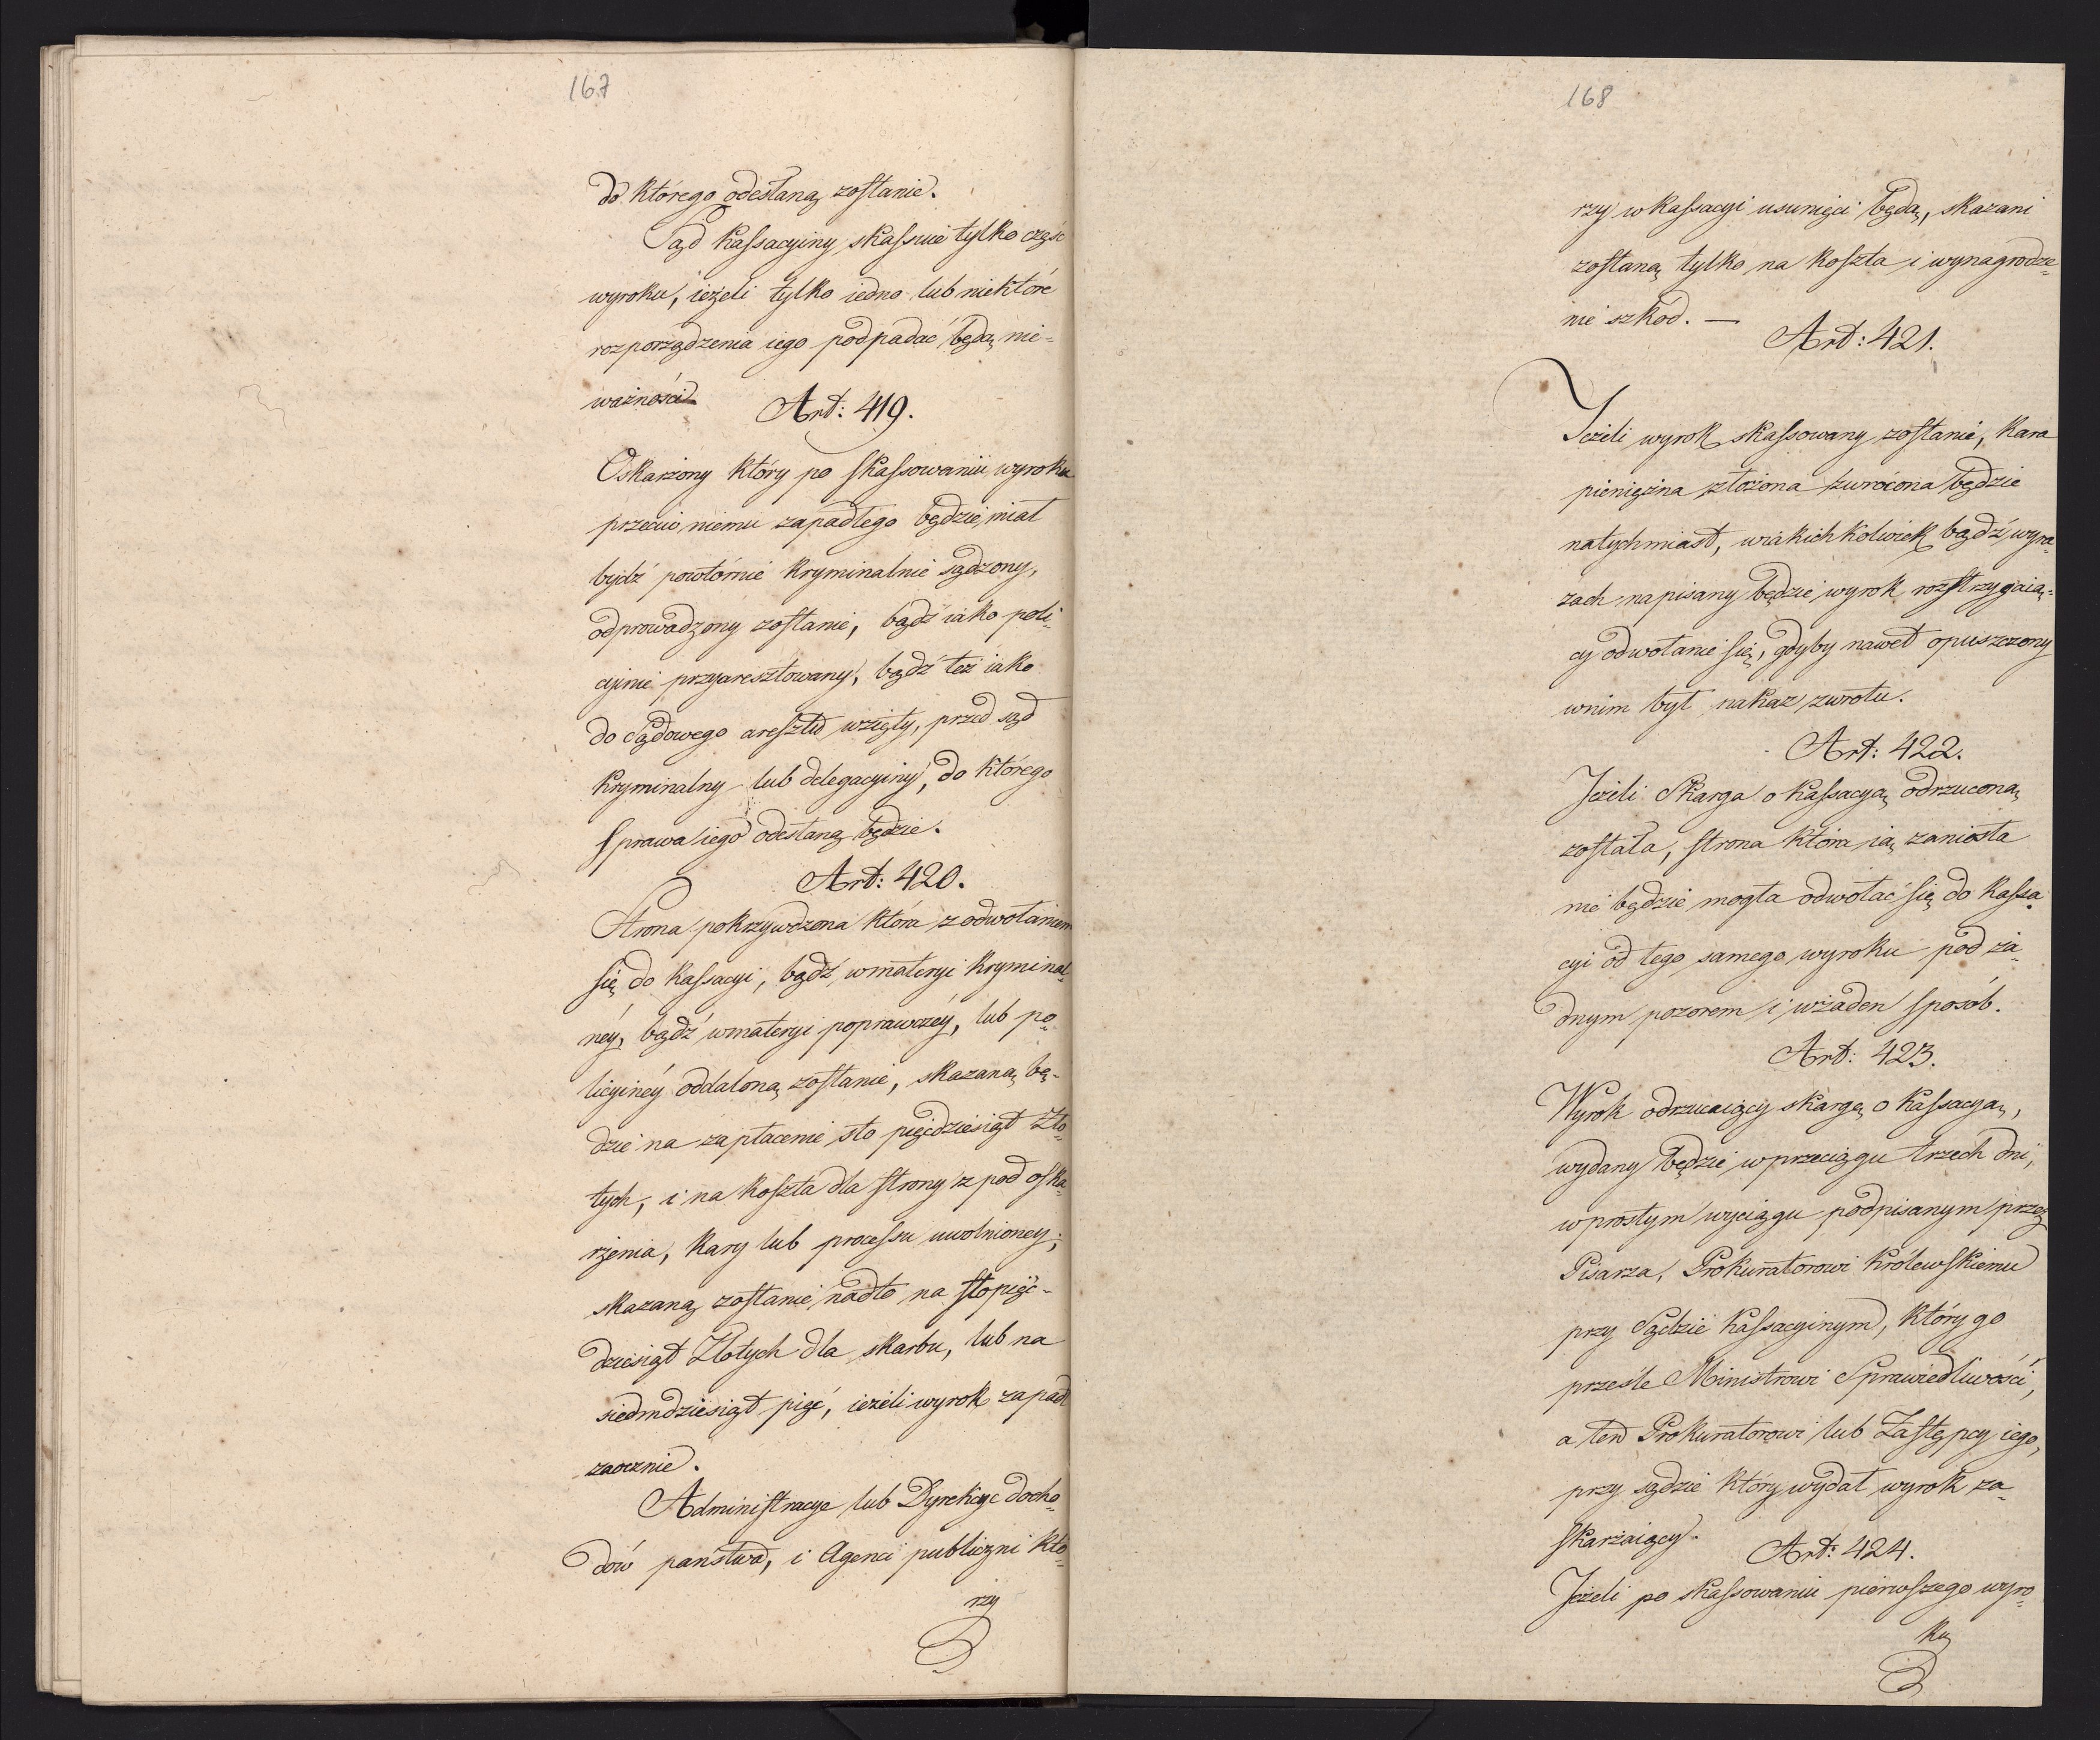 167
do którego odesłaną zostanie.
Sąd Kassacyiny skassuie tylko część
wyroku, ieżeli tylko iedno lub niektóre
rozporządzenia iego podpadać będą nie=
ważności
Art: 419.
Oskarżony który po skassowaniu wyroku
przeciw niemu zapadłego będzie miał
bydź powtórnie kryminalnie sądzony,
odprowadzony zostanie, bądź iako poli=
cyinie przyaresztowany, bądź też iako
do sądowego aresztu wzięty, przed sąd
Kryminalny lub delegacyiny, do którego
sprawa iego odesłaną będzie.
Art: 420.
Strona pokrzywdzona która z odwołaniem
się do Kassacyi, bądź w materyi kryminal
néy, bądź w materyi poprawczéy, lub po=
licyinéy oddaloną zostanie, skazaną bę=
dzie na zapłacenie sto pięćdziesiąt Zło=
tych, i na koszta dla strony z pod oska=
rżenia, kary lub processu uwolnioney;
skazaną zostanie nadto na sto pięć=
dziesiąt Złotych dla skarbu, lub na
siedmdziesiąt pięć, ieżeli wyrok zapadł
zaocznie.
Administracye lub Dyrekcye docho=
dów państwa, i Agenci publiczni któ=
rzy
168
rzy w Kassacyi usunięci będą, skazani
zostaną tylko na koszta i wynagrodze=
nie szkod. —
Art: 421.
Jeżeli wyrok skassowany zostanie, kara
pieniężna złożona zwrócona będzie
natychmiast, w iakichkolwiek bądź wyra=
zach napisany będzie wyrok rozstrzygaią=
cy odwołanie się, gdyby nawet opuszczony
w nim był nakaz zwrotu.
Art: 422.
Jeżeli Skarga o Kassacyą odrzuconą
została, strona która ią zaniosła
nie będzie mogła odwołać się do Kassa=
cyi od tego samego wyroku pod ża=
dnym pozorem i w żaden sposób.
Art: 423.
Wyrok odrzucaiący skargę o Kassacyą,
wydany będzie w przeciągu trzech dni,
w prostym wyciągu podpisanym przez
Pisarza, Prokuratorowi Królewskiemu
przy Sądzie Kassacyinym, który go
prześle Ministrowi Sprawiedliwości,
a ten Prokuratorowi lub Zastępcy iego,
przy sądzie który wydał wyrok za=
skarżaiący.
Art: 424.
Jeżeli po skassowaniu pierwszego wyro=
ku